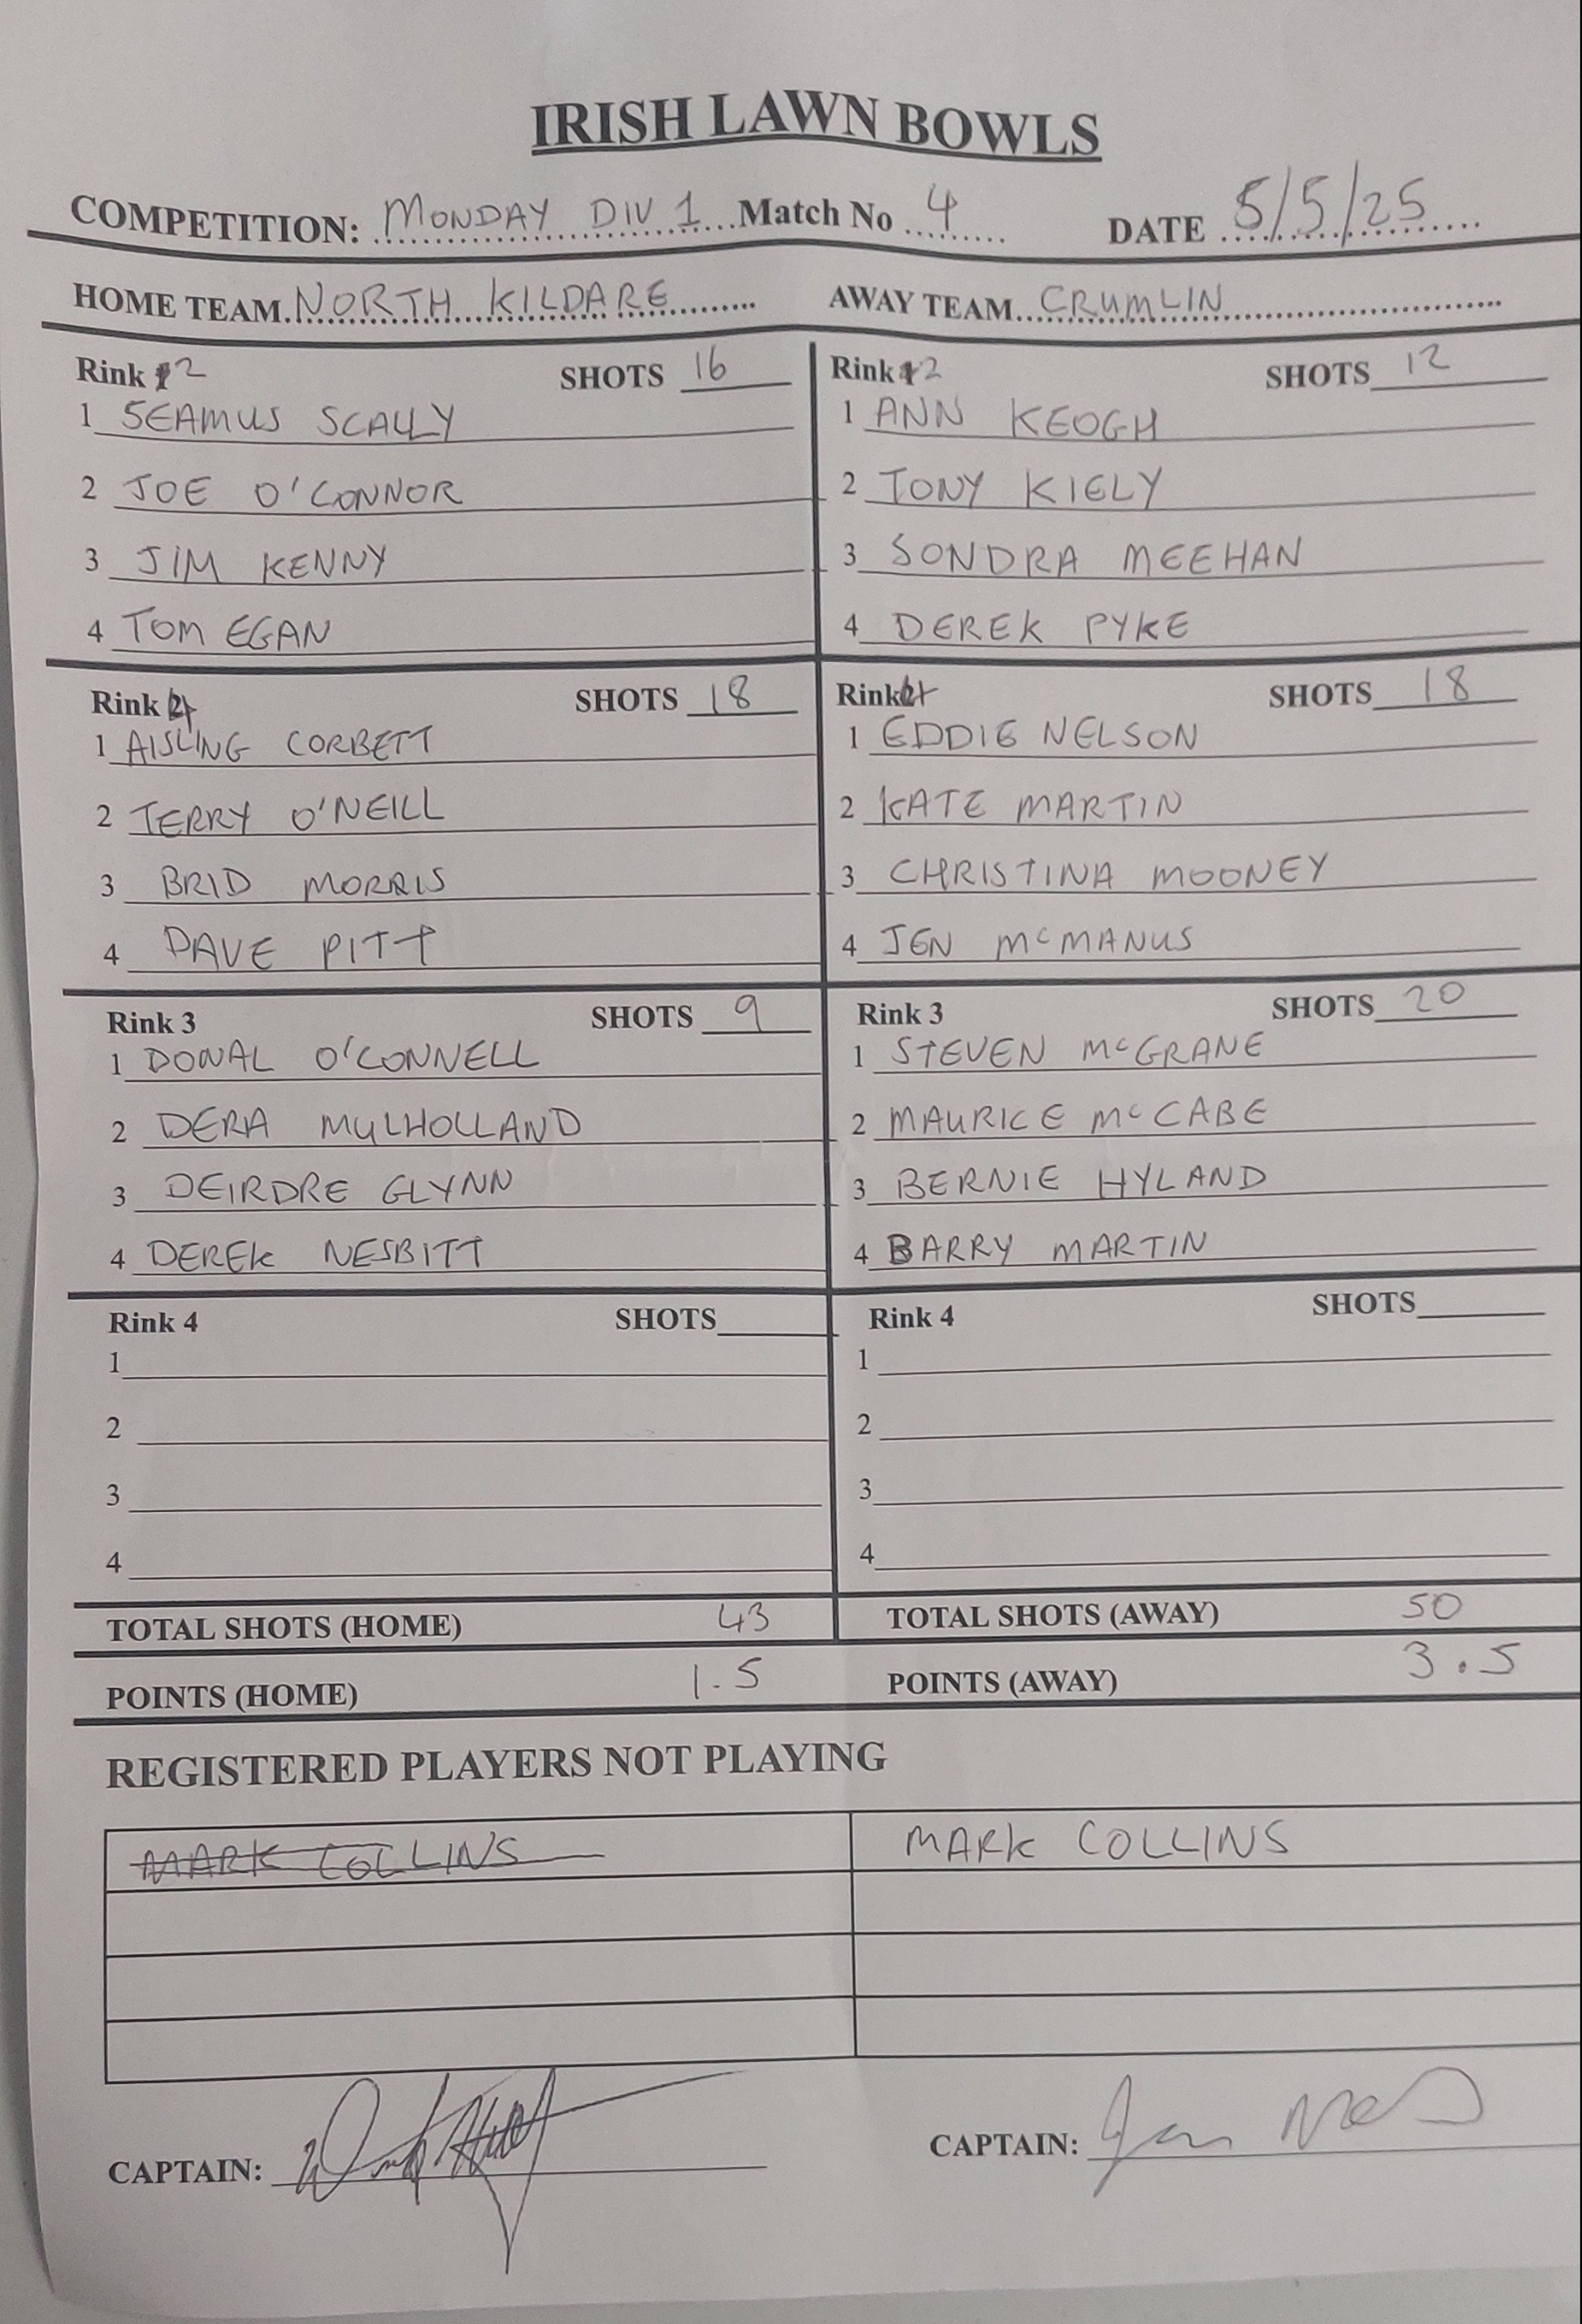 IRISH LAWN BOWLS
COMPETITION: MONDAY DIV 1 Match No 4 DATE 5/5/25
HOME TEAM NORTH KILDARE AWAY TEAM CRUMLIN
Rink 2 SHOTS 16
1 SEAMUS SCALLY
2 JOE O'CONNOR
3 JIM KENNY
4 TOM EGAN
Rink 2 SHOTS 12
1 ANN KEOGH
2 TONY KIELY
3 SONDRA MEEHAN
4 DEREK PYKE
Rink 4 SHOTS 18
1 AISLING CORBETT
2 TERRY O'NEILL
3 BRID MORRIS
4 DAVE PITT
Rink 4 SHOTS 18
1 EDDIE NELSON
2 KATE MARTIN
3 CHRISTINA MOONEY
4 JEN McMANUS
Rink 3 SHOTS 9
1 DONAL O'CONNELL
2 DERA MULHOLLAND
3 DEIRDRE GLYNN
4 DEREK NESBITT
Rink 3 SHOTS 20
1 STEVEN McGRANE
2 MAURICE McCABE
3 BERNIE HYLAND
4 BARRY MARTIN
Rink 4 SHOTS
1
2
3
4
Rink 4 SHOTS
1
2
3
4
TOTAL SHOTS (HOME) 43 TOTAL SHOTS (AWAY) 50
POINTS (HOME) 1.5 POINTS (AWAY) 3.5
REGISTERED PLAYERS NOT PLAYING
MARK COLLINS MARK COLLINS
CAPTAIN: CAPTAIN: